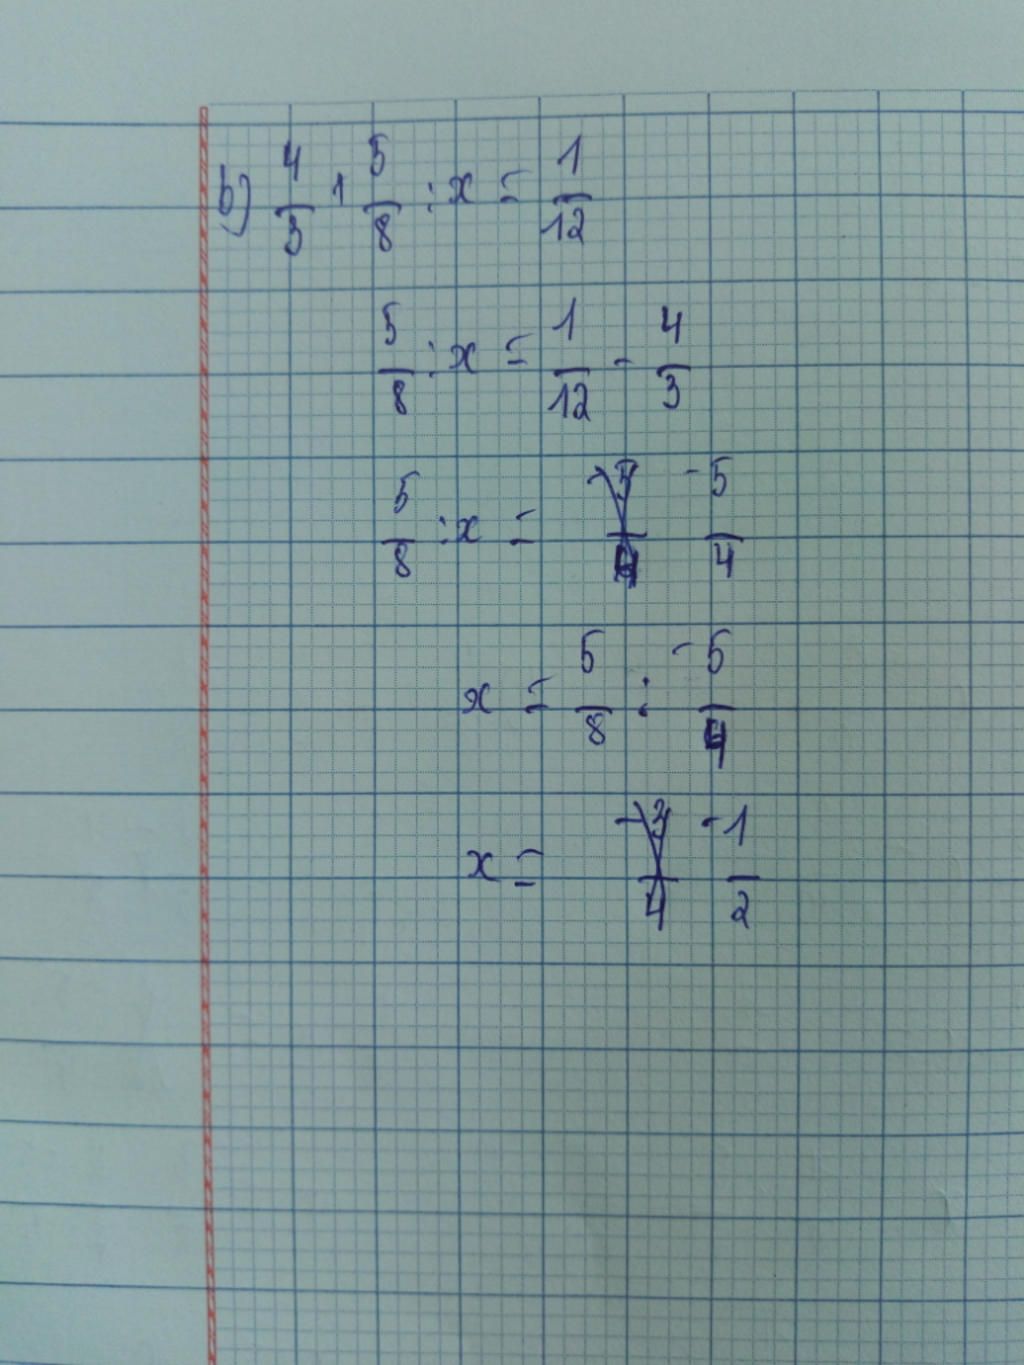 b) 4/3 + 5/8 : x = 1/12
5/8 : x = 1/12 - 4/3
5/8 : x = -5/4
x = 5/8 : -5/4
x = -3/4 -1/2